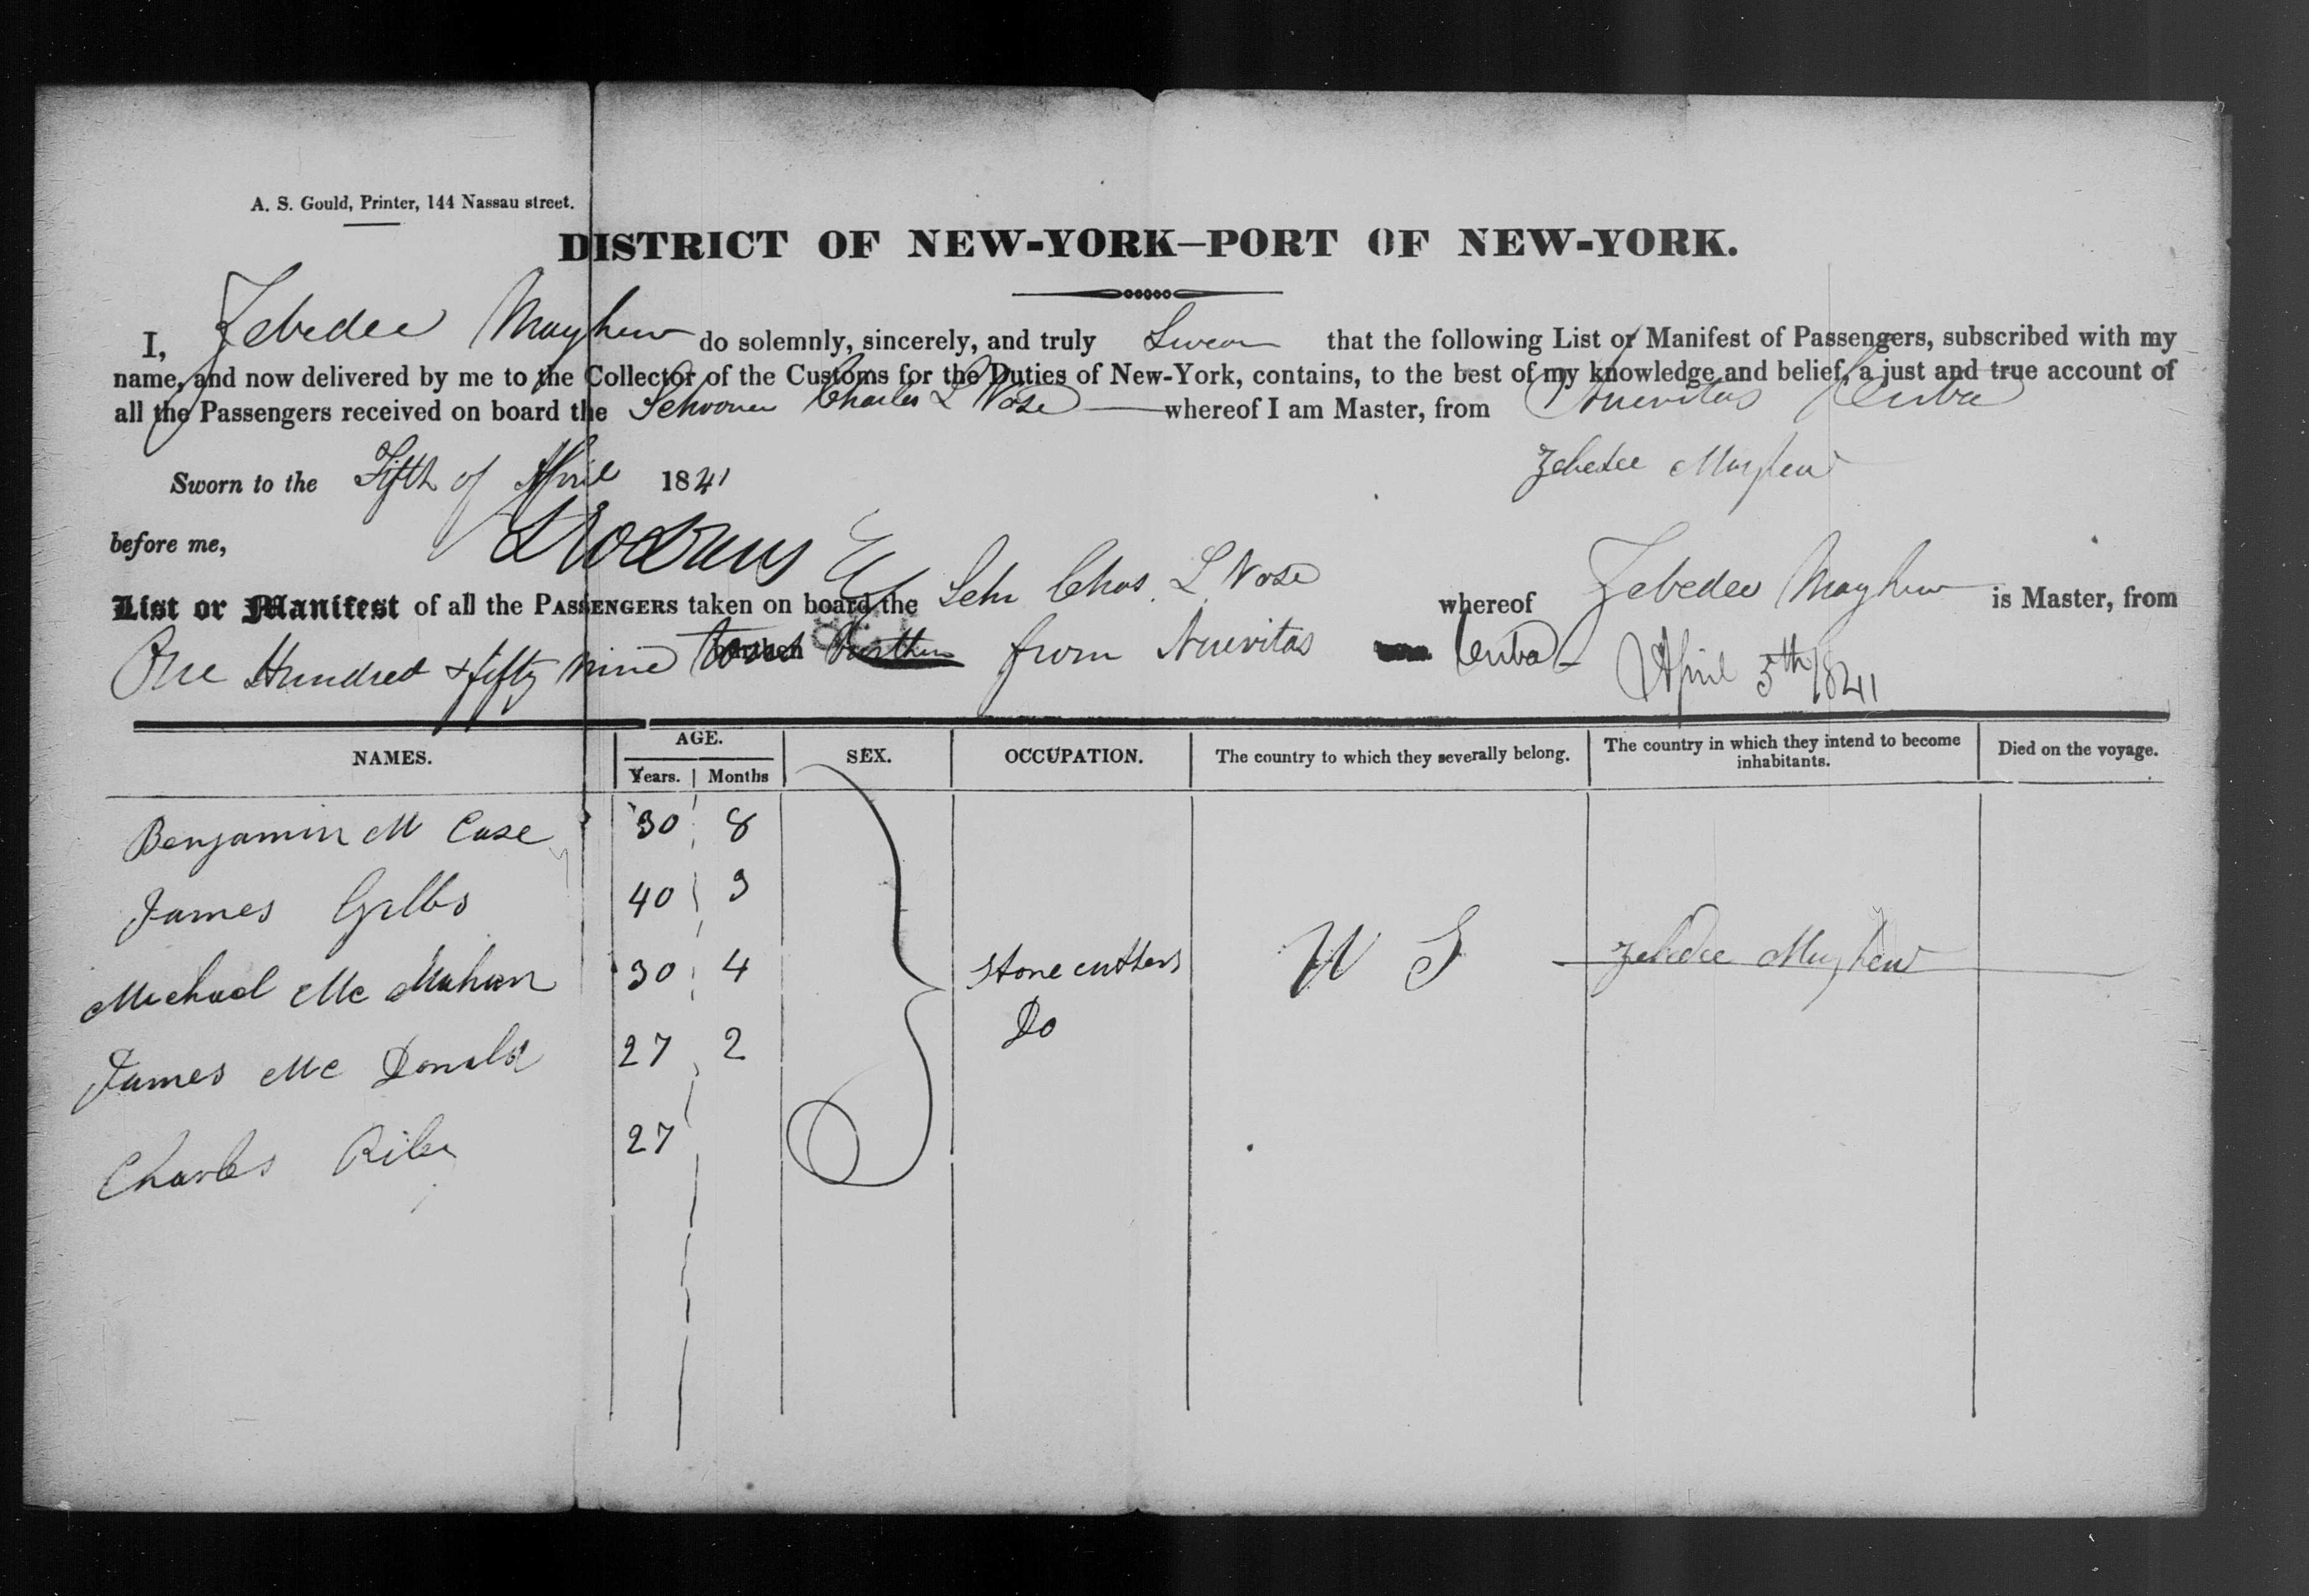 A. S. Gould, Printer, 144 Nassau street.
DISTRICT OF NEW-YORK—PORT OF NEW-YORK.
I, Zebedee Mayhew do solemnly, sincerely, and truly Swear that the following List or Manifest of Passengers, subscribed with my
name, and now delivered by me to the Collector of the Customs for the Duties of New-York, contains, to the best of my knowledge and belief, a just and true account of
all the Passengers received on board the Schooner Charles L Vose whereof I am Master, from Nuevitas Cuba
Zebedee Mayhew
Sworn to the Fifth of April 1841
before me,
List or Manifest of all the PASSENGERS taken on board the Schr Chas. L Vose whereof Zebedee Mayhew is Master, from
One Hundred & fifty nine burthen from Nuevitas Cuba - April 5th 1841
NAMES. AGE. SEX. OCCUPATION. The country to which they severally belong. The country in which they intend to become inhabitants. Died on the voyage.
Years. Months
Benjamin M Case 30 8
James Gibbs 40 3
Michael Mc Mahan 30 4 stone cutters U S Zebedee Mayhew
James Mc Donald 27 2 Do
Charles Riley 27